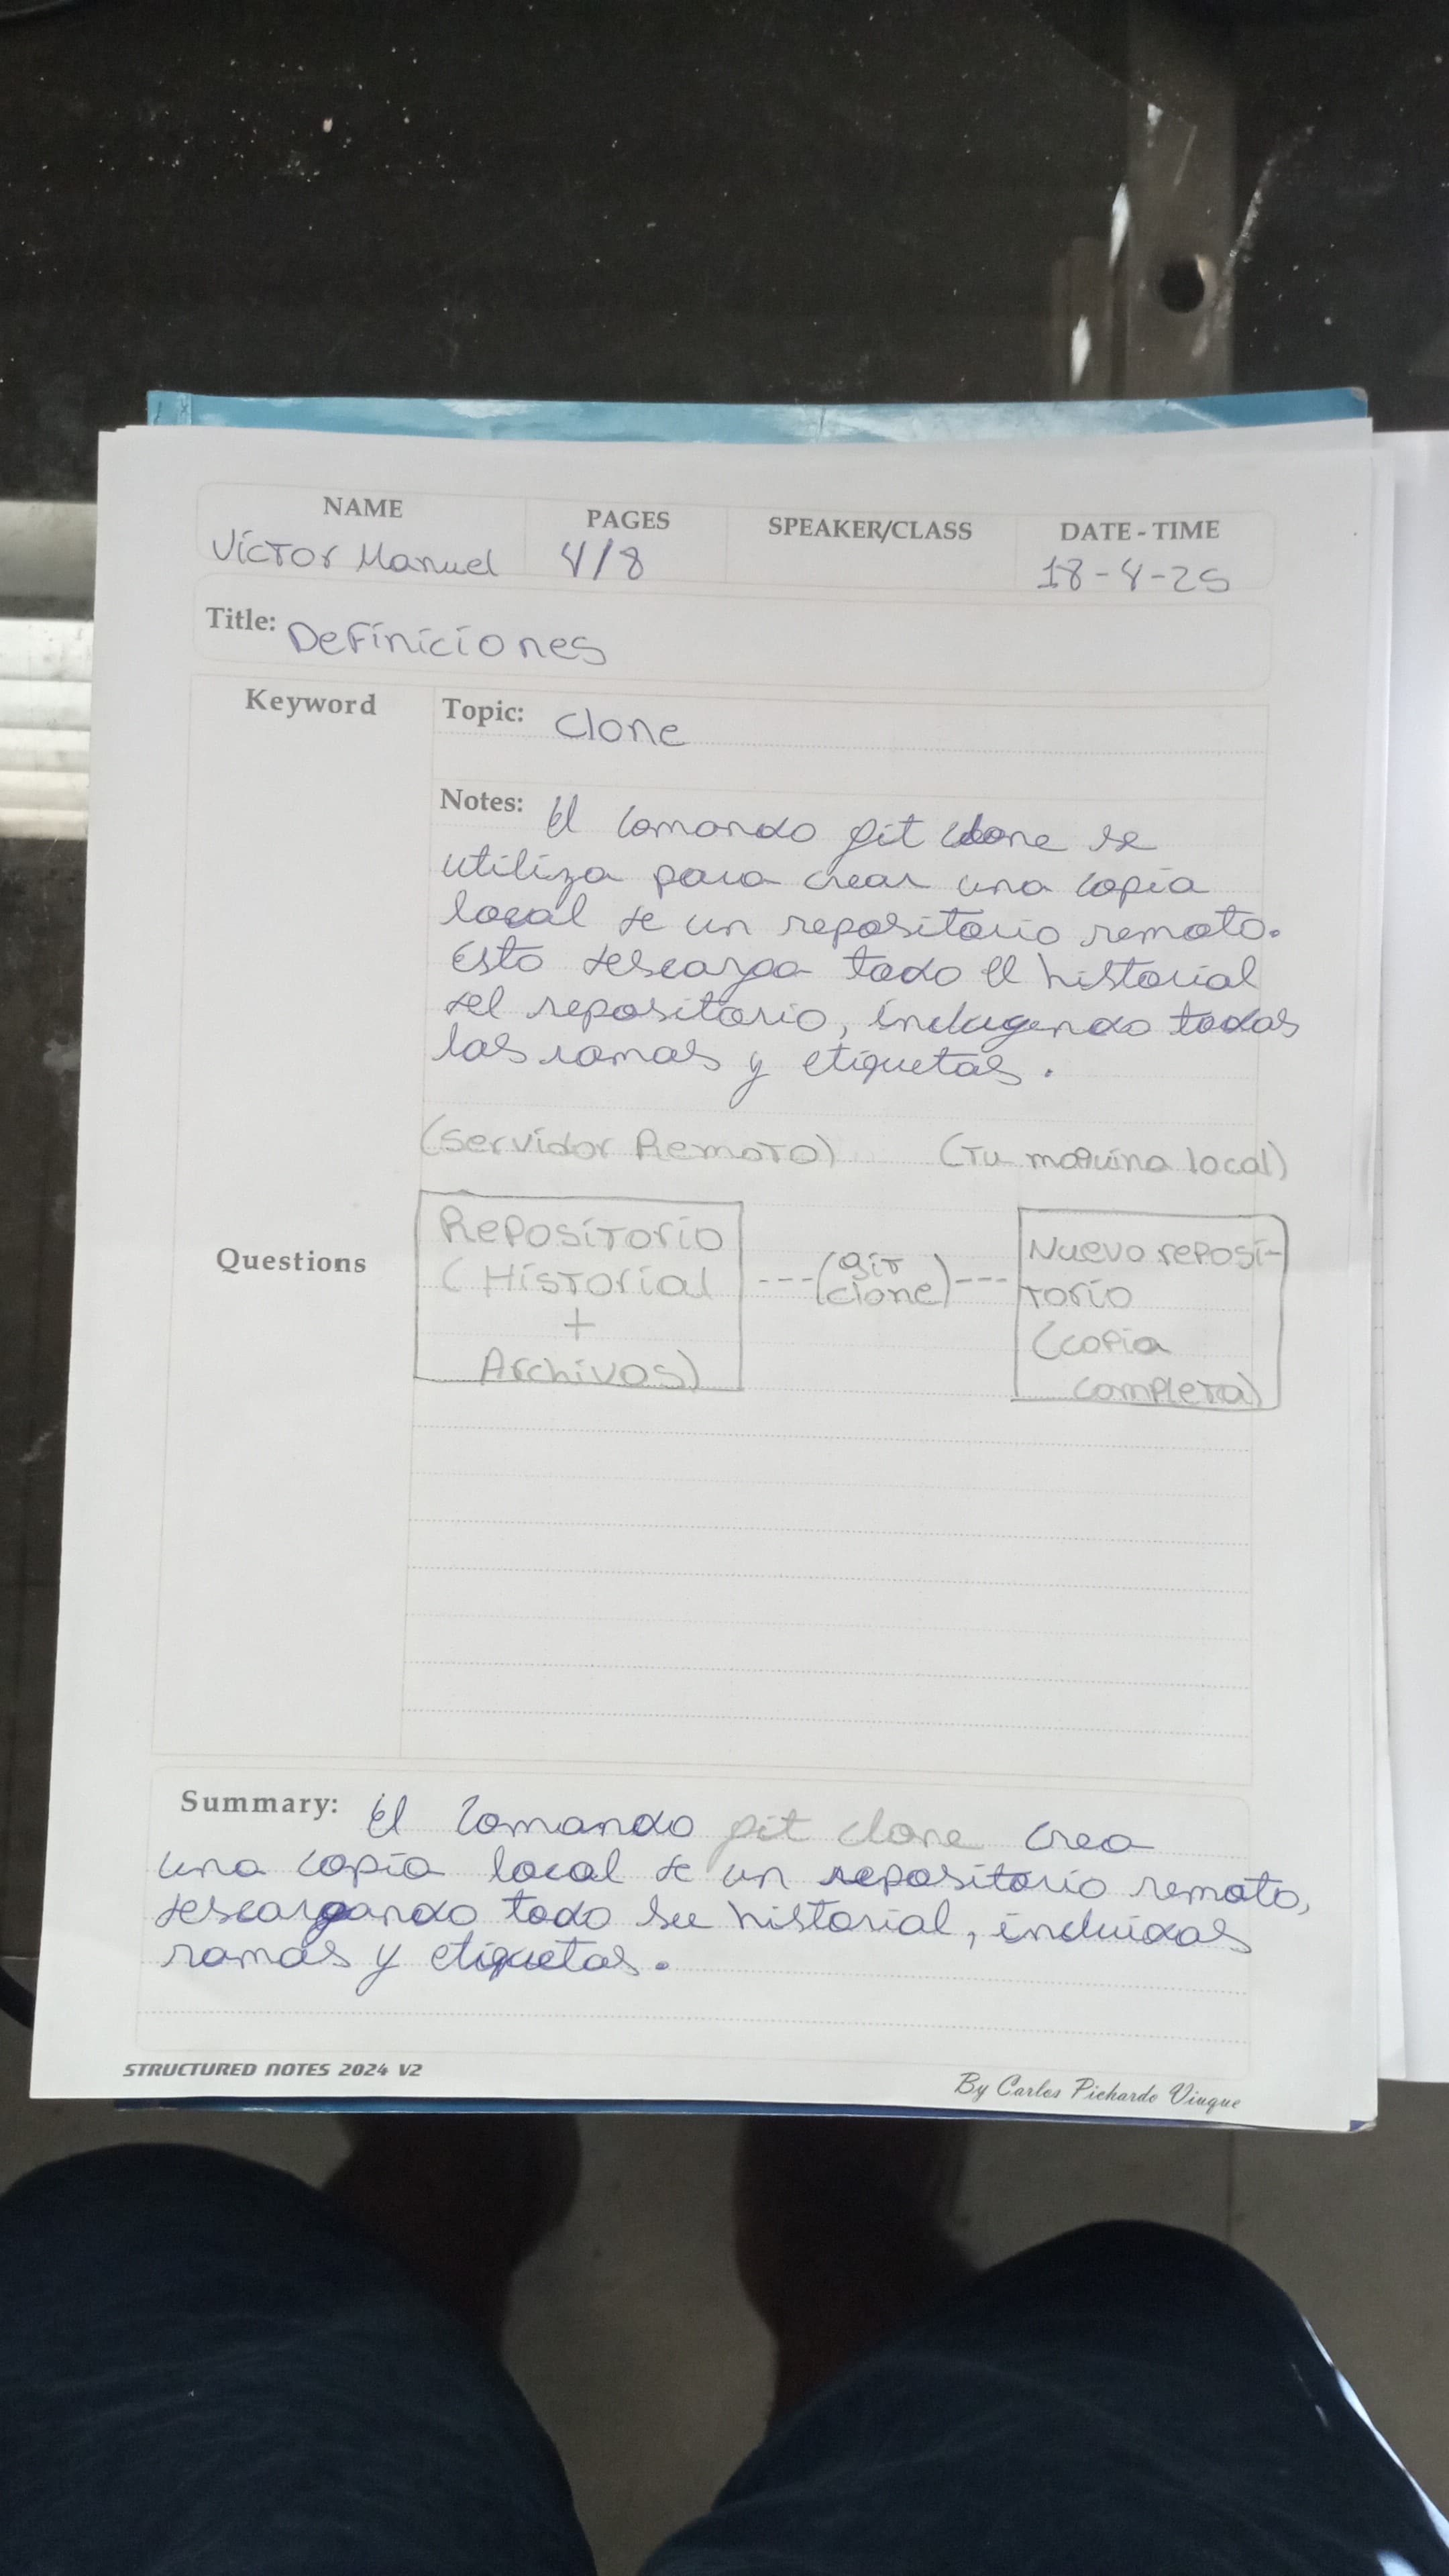 NAME PAGES SPEAKER/CLASS DATE - TIME
Víctor Manuel 4/8 18-4-25
Title: Definiciones
Keyword Topic: Clone
Notes: El comando git clone se
utiliza para crear una copia
local de un repositorio remoto.
Esto descarga todo el historial
del repositorio, incluyendo todas
las ramas y etiquetas.
(Servidor Remoto) (Tu maquina local)
Repositorio
(Historial
+
Archivos)
---(git
clone)---
Nuevo reposi-
torio
(copia
completa)
Questions
Summary: El comando git clone crea
una copia local de un repositorio remoto,
descargando todo su historial, incluidas
ramas y etiquetas.
STRUCTURED NOTES 2024 V2
By Carlos Pichardo Viuque